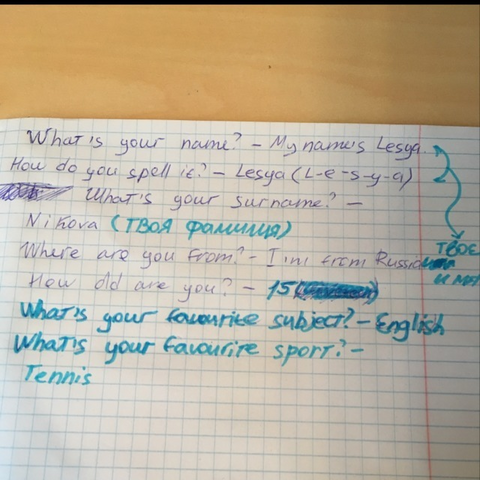 What's your name? - My name's Lesya.
How do you spell it? - Lesya (L-e-s-y-a)
What's your surname? -
Nikova (твоя фамилия)
Where are you from? - I'm from Russia
How old are you? - 15
What's your favourite subject? - English
What's your favourite sport? -
Tennis
ТВОЕ